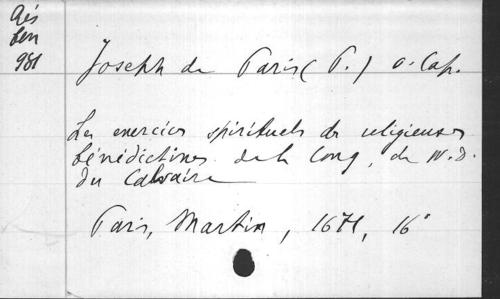 Rés
ben
981
Joseph de Paris (P.) o. Cap.
Les exercices spirituels des religieuses
bénédictines de la Cong. de N.D.
du Calvaire
Paris, Martin, 1671, 16°